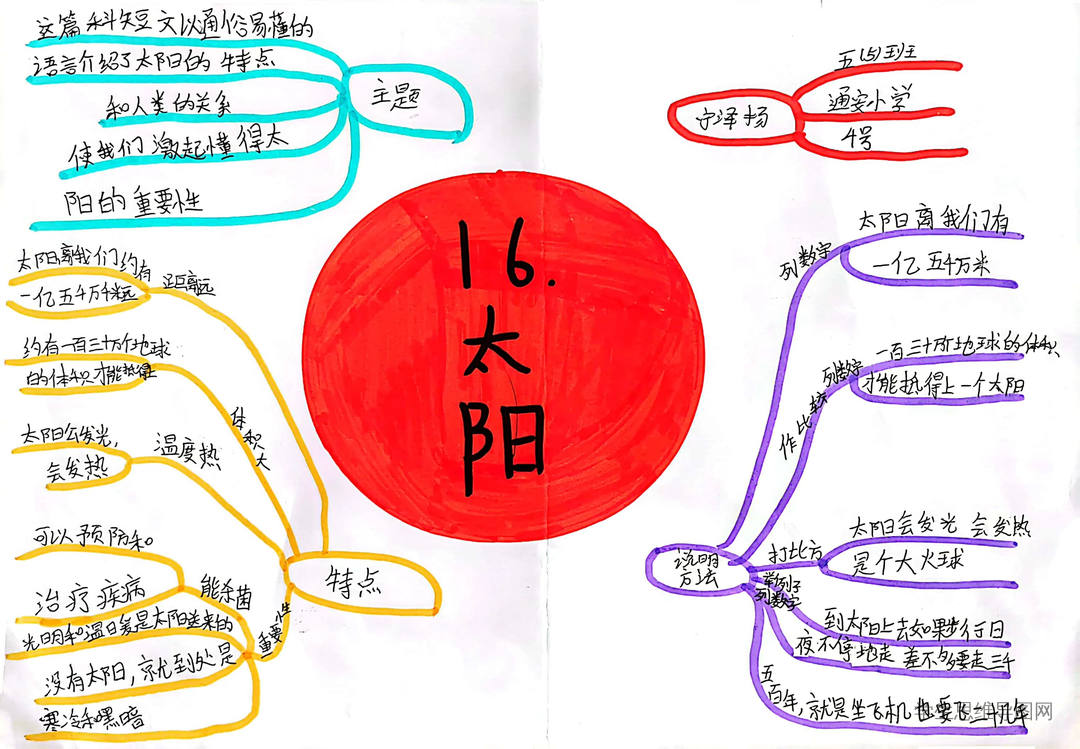 这篇科短文以通俗易懂的
语言介绍了太阳的特点
和人类的关系
使我们激起懂得太
阳的重要性
主题
宁泽扬
五(5)班
通安小学
4号
16.
太
阳
太阳离我们约有
一亿五千万千米远
距离远
约有一百三十万个地球
的体积才能抵得
体积大
太阳会发光,
会发热
温度热
可以预防和
治疗疾病
能杀菌
光明和温暖是太阳送来的
没有太阳,就到处是
寒冷和黑暗
重要性
特点
说明
方法
列数字
太阳离我们有
一亿五千万米
列数字
作比较
一百三十万个地球的体积
才能抵得上一个太阳
打比方
太阳会发光 会发热
是个大火球
举例子
列数字
到太阳上去如果步行日
夜不停地走 差不多要走三千
五百年,就是坐飞机也要飞二十几年
思维导图网